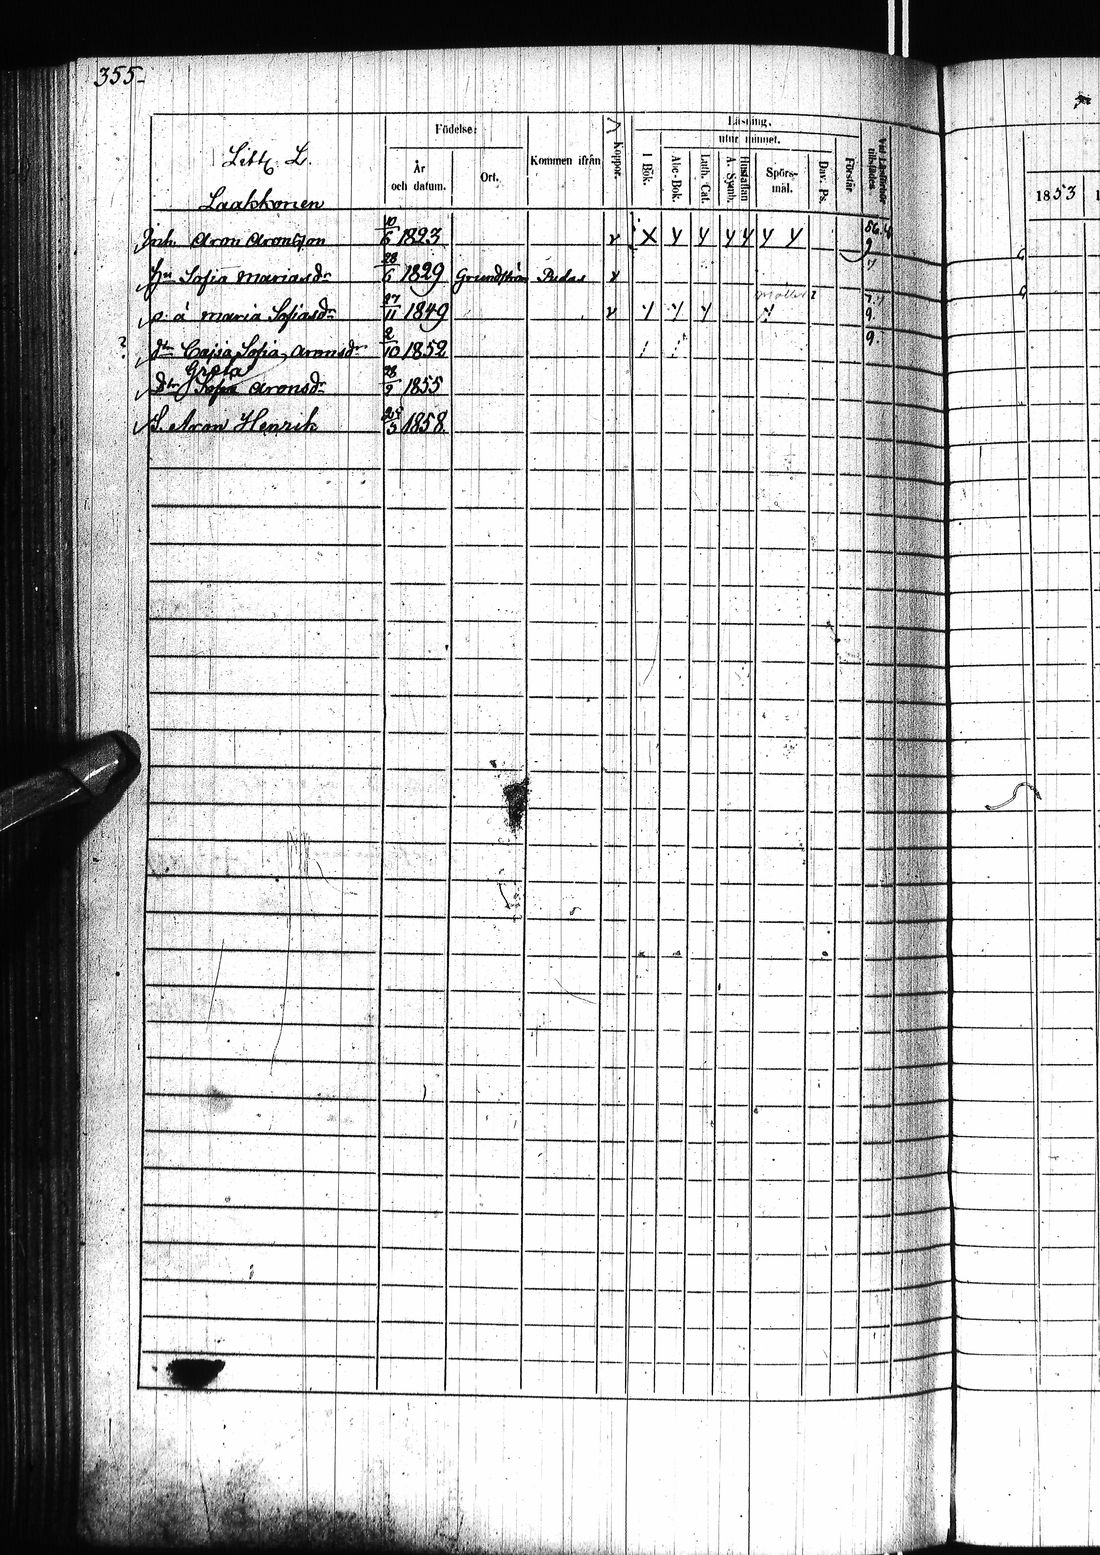 355
Litt. L.
Laakkonen
Födelse:
År och datum.
Ort.
Kommen ifrån
Koppor.
Läsning,
utur minnet.
I Bok.
Abc-Bok.
Luth. Cat.
Hustaflan A. Symb.
Spörs-mål.
Dav. Ps.
Förstår
1853
Inh. Aron Aronsson 10/6 1823 v X y y y y y y 56.
Hu Sofia Mariasdr 28/6 1829 Grundsträn Pudas v
o. ä Maria Sofiasdr 27/11 1849 v
dtr Cajsa Sofia Aronsdr 2/10 1852
Greta
Dtr Sofia Aronsdr 28/9 1855
S. Aron Henrik 25/3 1858